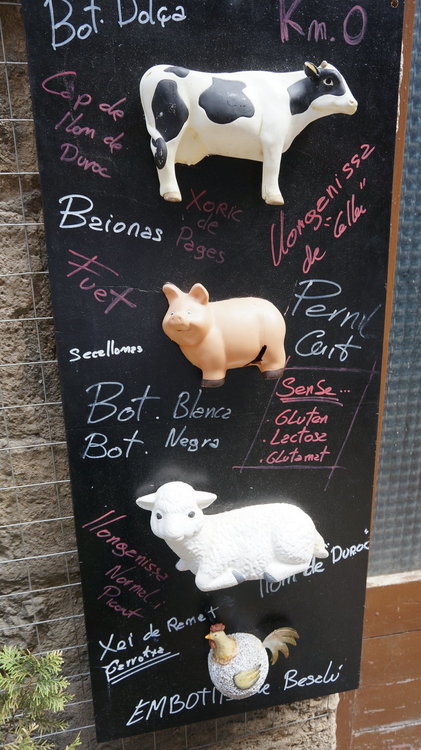 Bot. Dolça
Km. 0
Cap de
llom de
Duroc
Baionas
Xoric
de
Pages
Llongenissa
de "Ceba"
Fuet
Pernil
Cuit
Secallones
Bot. Blanca
Bot. Negra
Sense...
Gluten
. Lactosa
. Glutamat
Llongenissa
Normal i
Picant
llom de "Duroc"
Xai de Ramat
Garrotxa
de Besalú